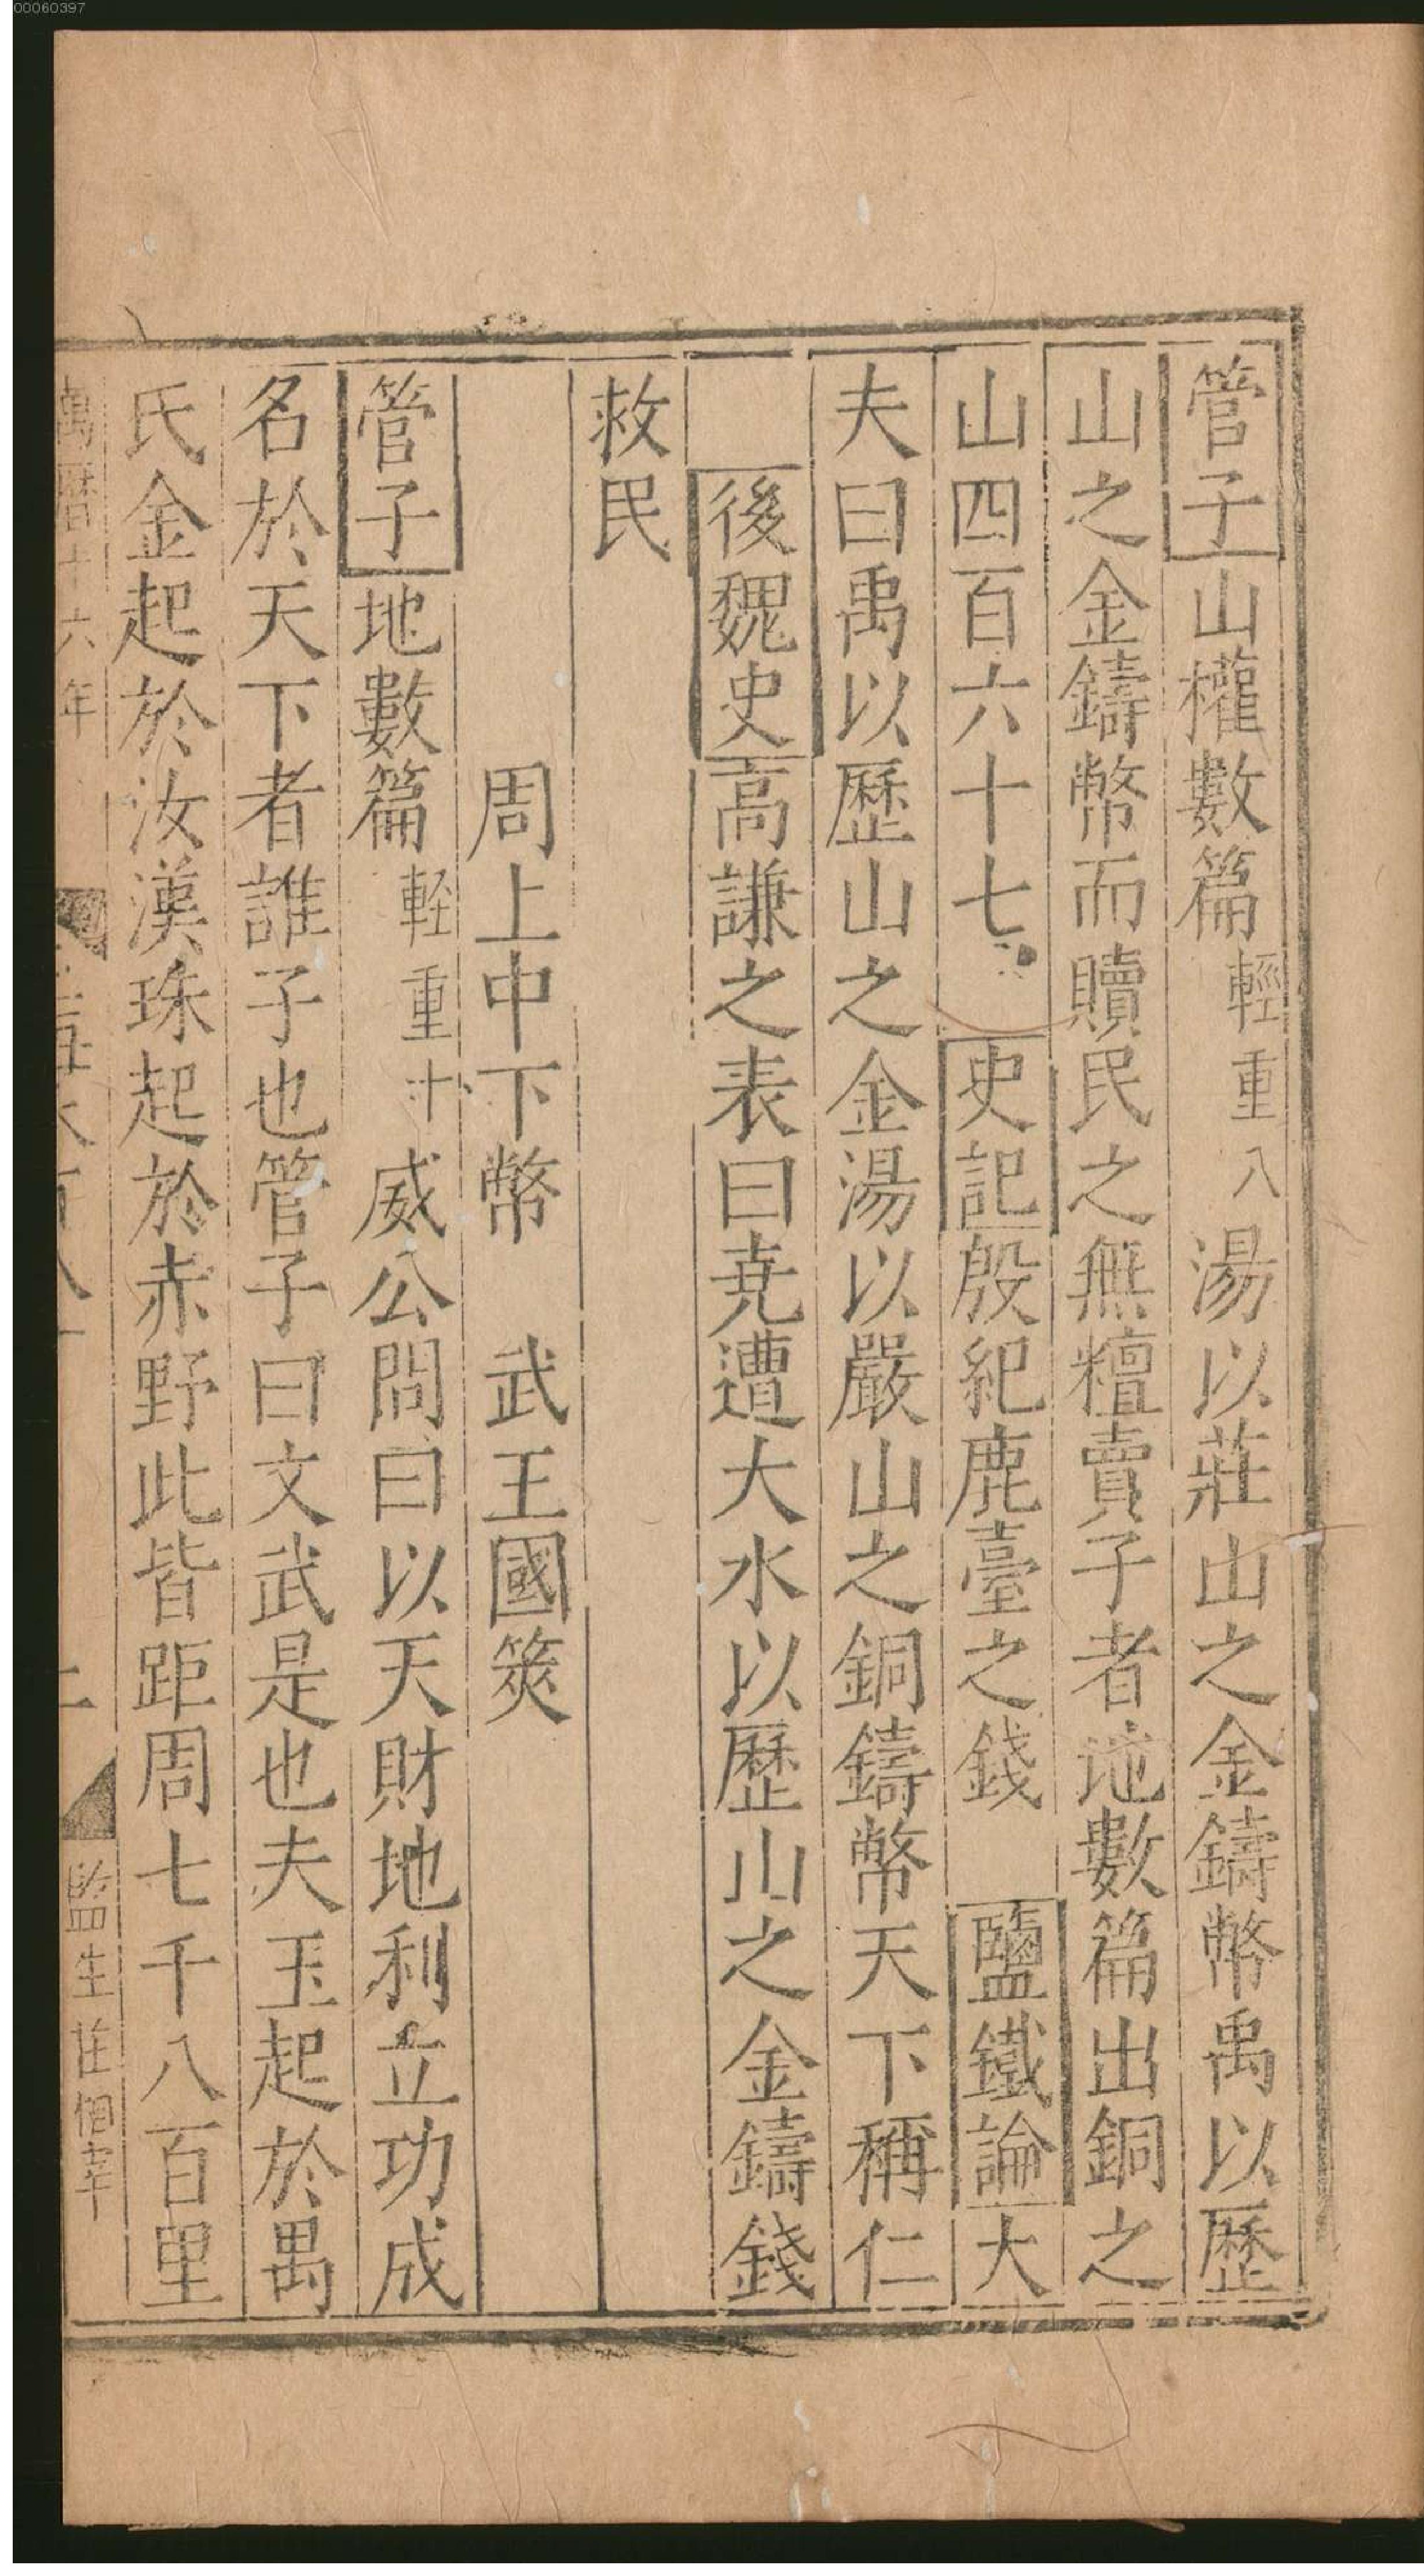 00060397
管子山權數篇輕重八湯以莊山之金鑄幣禹以歷
山之金鑄幣而贖民之無𥼷賣子者地數篇出銅之
山四百六十七史記殷紀鹿臺之錢鹽鐵論大
夫曰禹以歷山之金湯以嚴山之銅鑄幣天下稱仁
後魏史高謙之表曰堯遭大水以歷山之金鑄錢
救民
周上中下幣 武王國筴
管子地數篇輕重十威公問曰以天財地利立功成
名於天下者誰子也管子曰文武是也夫玉起於禺
氏金起於汝漢珠起於赤野此皆距周七千八百里
萬曆十六年
監生